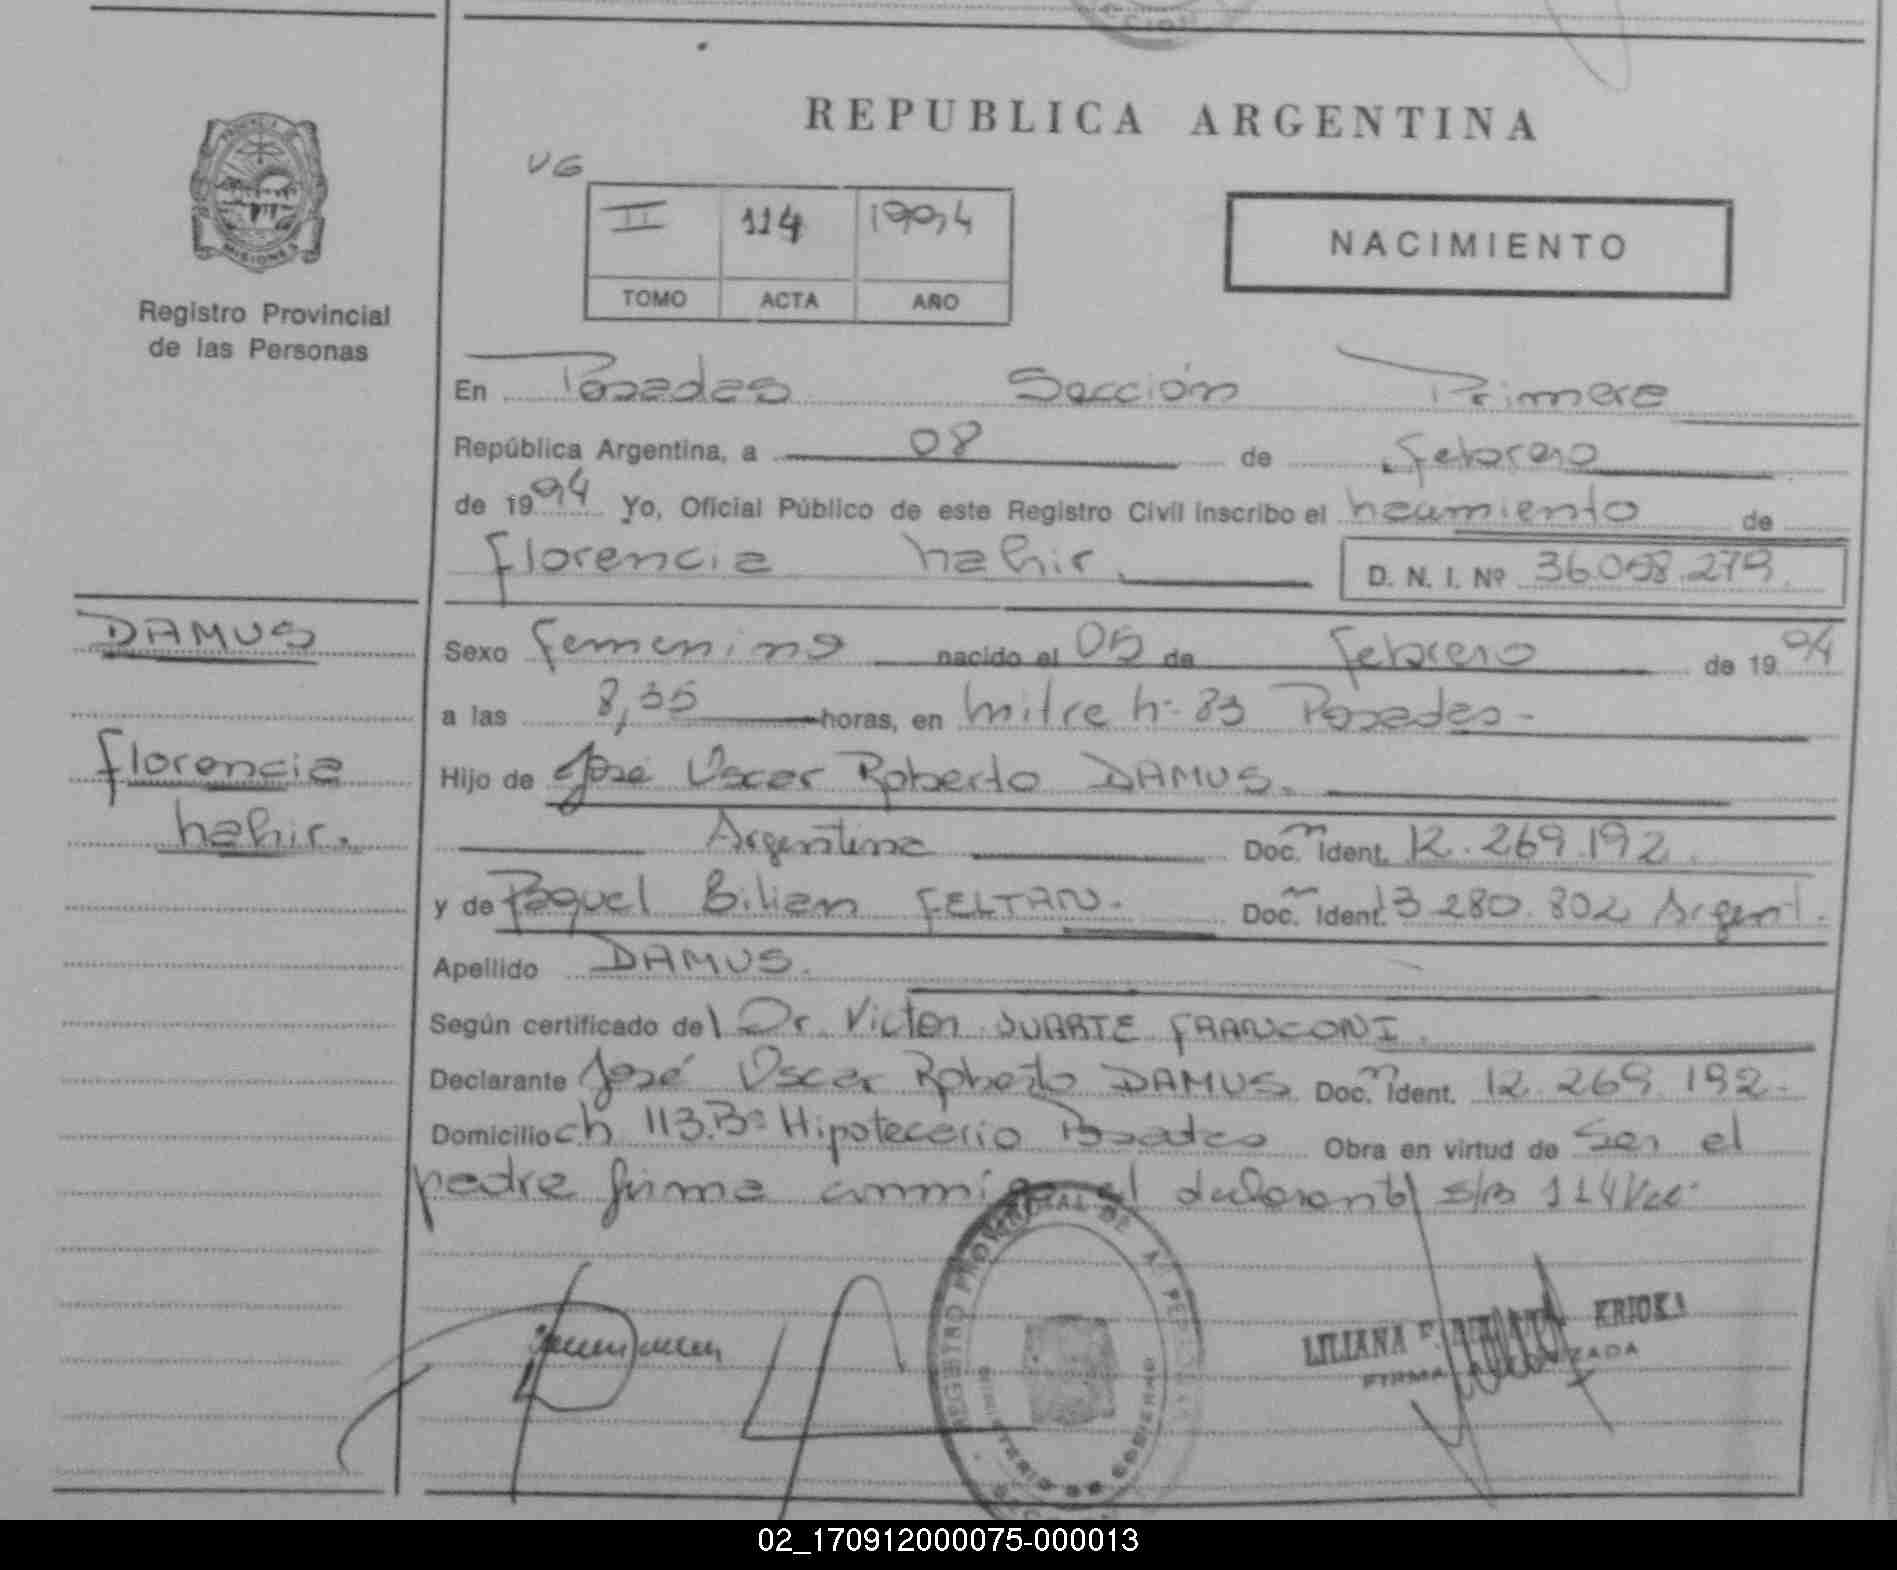 REPUBLICA ARGENTINA
VG
II 114 1994
TOMO ACTA AÑO
NACIMIENTO
PROVINCIA DE
MISIONES
Registro Provincial
de las Personas
En Posadas Sección Primera
República Argentina, a 08 de febrero
de 1994 Yo, Oficial Público de este Registro Civil inscribo el nacimiento de
Florencia Nahir. D. N. I. Nº 36.058.279.
DAMUS
Florencia
Nahir.
Sexo femenino nacido el 05 de febrero de 1994
a las 8,35 horas, en Mitre Nº 83 Posadas-
Hijo de José Oscar Roberto DAMUS.
Argentina Doc. Ident. 12.269.192.
y de Raquel Lilian FELTAN. Doc. Ident. 13.280.802 Argent.
Apellido DAMUS.
Según certificado del Dr. Victor DUARTE FRANCONI.
Declarante José Oscar Roberto DAMUS Doc. Ident. 12.269.192.
Domicilio ch 113.Bº Hipotecario Posadas Obra en virtud de ser el
padre firma conmigo el declarante s/r 114
REGISTRO PROVINCIAL DE
MINISTERIO DE GOBIERNO
LILIANA KRIOKI
FIRMA AUTORIZADA
02_170912000075-000013